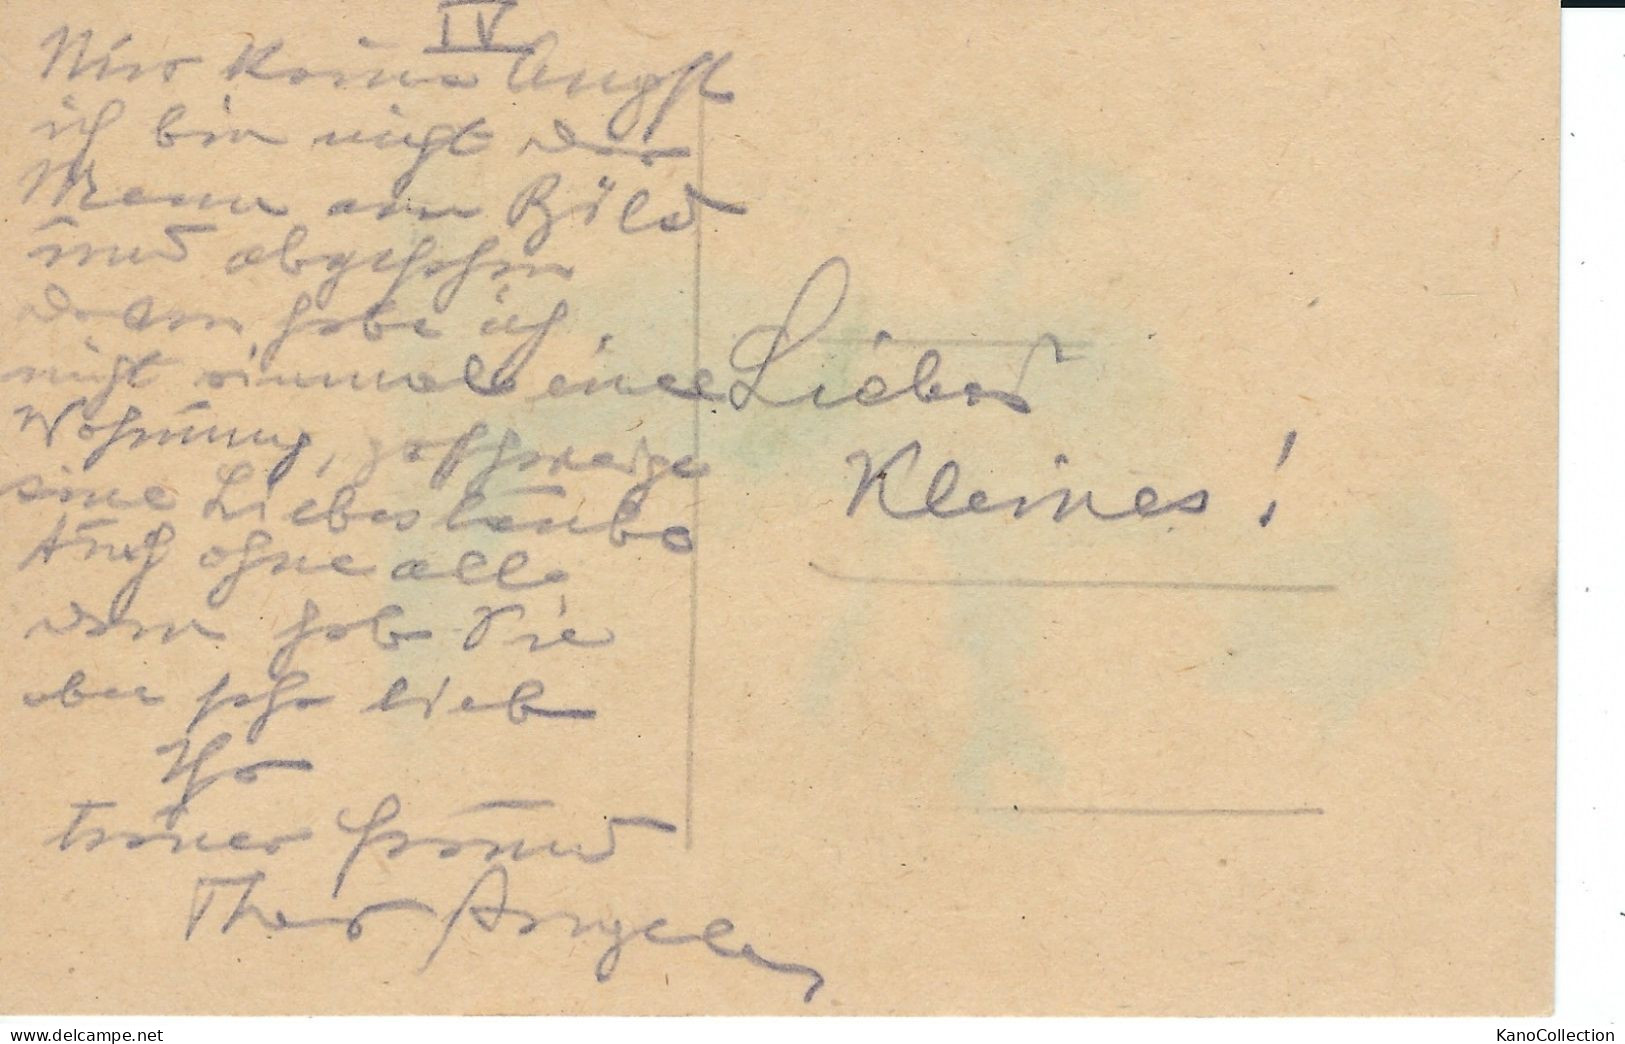 IV
Nur keine Angst
ich bin nicht der
Mann am Bild
und abgesehen
davon habe ich
nicht einmal eine
Wohnung, geschweige
eine Liebeslaube
Auch ohne all
dem hab Sie
aber sehr lieb
Ihr
treuer Freund
Theo
Liebes
Kleines!
www.delcampe.net
KanoCollection